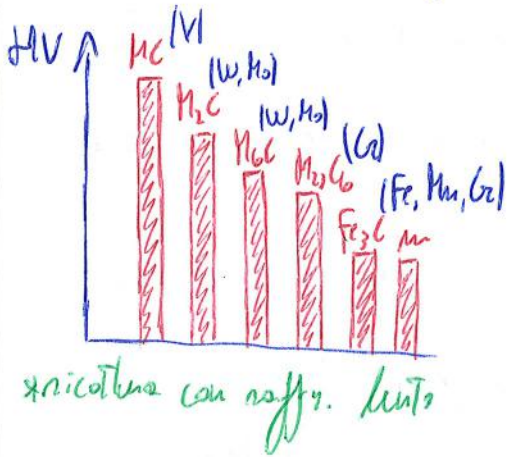 HV
MC (V)
M₂C (W, Mo)
M₆C (W, Mo)
M₂₃C₆ (Cr)
Fe₃C (Fe, Mn, Cr)
m
*ricottura con raffr. lento